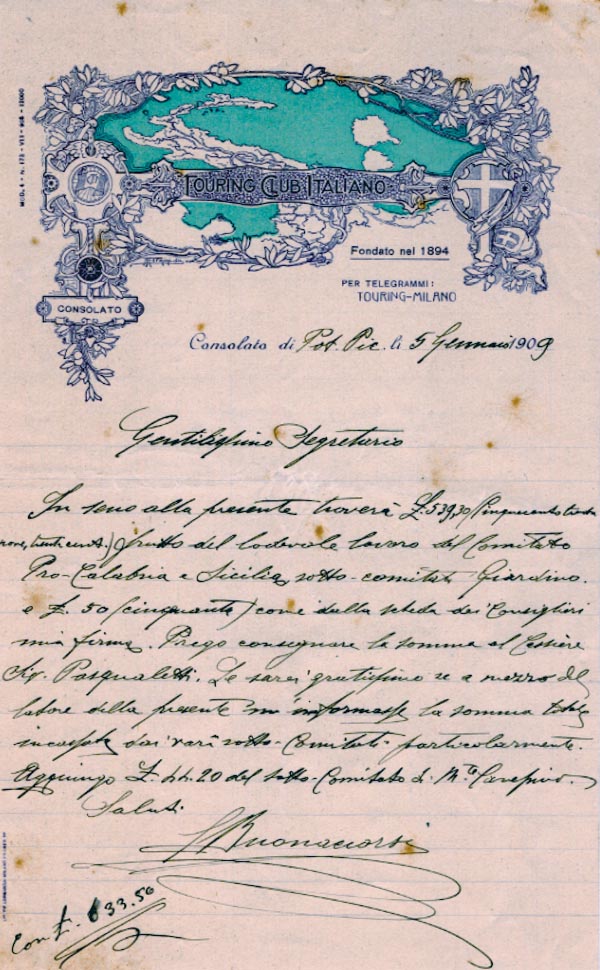 TOURING CLUB ITALIANO
Fondato nel 1894
PER TELEGRAMMI:
TOURING-MILANO
CONSOLATO
Consolato di Pot. Pic. li 5 Gennaio 1909
Gentilissimo Segretario
In seno alla presente troverà £. 539,30 (Cinquecentotrenta
nove, trenta cent.) frutto del lodevole lavoro del Comitato
Pro-Calabria e Sicilia, sotto-comitato Giardino.
e £. 50 (cinquanta) come dalla scheda dei Consiglieri
mia firma. Prego consegnare la somma al Cassiere
Sig. Pasqualetti. Le sarei gratissimo se a mezzo del
latore della presente mi informasse la somma totale
incassata dai vari sotto-Comitati particolarmente.
Aggiungo £. 44.20 del sotto-Comitato di M.te Canepino.
Saluti
Buonaccorsi
Con £. 633.50